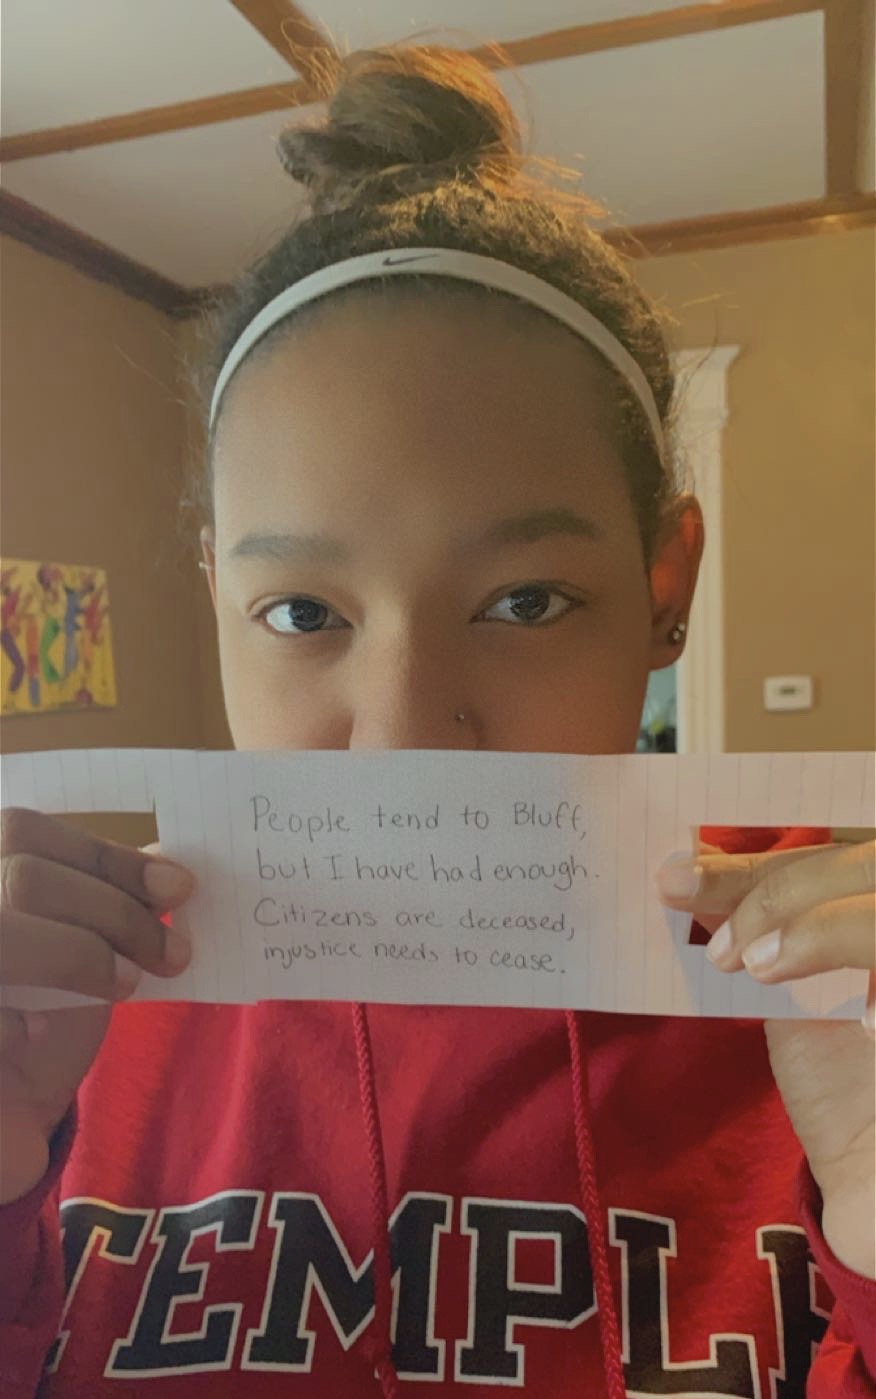 People tend to Bluff,
but I have had enough.
Citizens are deceased,
injustice needs to cease.
TEMPLE